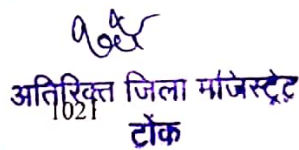 अतिरिक्त जिला मजिस्ट्रेट
1021
टोंक